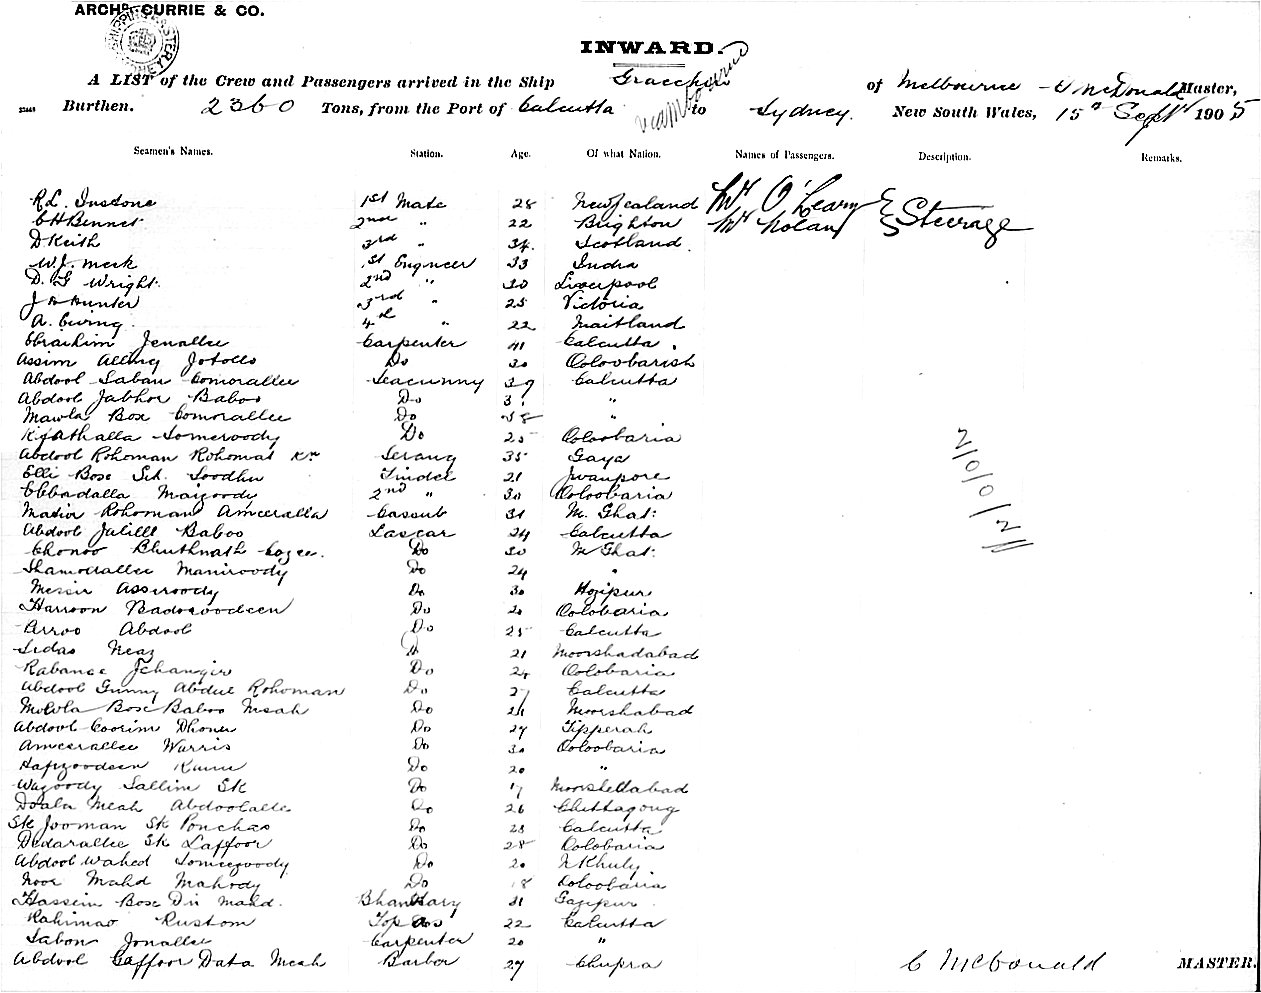 ARCHD. CURRIE & CO.
INWARD.
A LIST of the Crew and Passengers arrived in the Ship Gracchus of Melbourne C McDonald Master,
Burthen. 2360 Tons, from the Port of Calcutta via Melbourne to Sydney. New South Wales, 15th Sept 1905
Seamen's Names. Station. Age. Of what Nation. Names of Passengers. Description. Remarks.
R L. Instone 1st Mate 28 New Zealand Mr O'Leary } Steerage
C H Bennet 2nd " 22 Brighton Mr Nolan
D Keith 3rd " 34 Scotland
W. J. Meek 1st Engineer 33 India
D. G Wright 2nd " 30 Liverpool
J Hunter 3rd " 25 Victoria
A. Ewing 4th " 22 Maitland
Ebrahim Jenallee Carpenter 41 Calcutta
Assim Do 30
Abdool Saban Comorallee Seacunny 39 Calcutta
Abdool Jabhor Baboo Do "
Mawla Box Comorallee Do 38 "
Kyathalla Someroody Do 25 Ooloobaria
Abdool Rohoman Rohomat Kn Serang 35 Gaya
Elli Box Sk. Soodhu Tindel 21 Jwanpore
Ebbadalla Maizoody 2nd " 30 Ooloobaria
Rohoman Ameeralla Cassub 31 M. Ghat.
Abdool Jalill Baboo Lascar 24 Calcutta
Chonoo Bhuthnath Do 30 M Ghat.
Maniroody Do 24 "
Messir Assiroody Do 30 Hazipur
Harroon Badoroodeen Do 20 Oolobaria
Arroo Abdool Do 25 Calcutta
Sidas Neaz Do 21 Moorshadabad
Rabance Jehangir Do 24 Oolobaria
Abdool Gunny Abdul Rohoman Do 27 Calcutta
Mowla Box Baboo Meah Do 21 Moorshabad
Abdool Coorim Dhonu Do 27 Tipperah
Ameerallee Warris Do 30 Ooloobaria
Hafizoodeen Do 20 "
Wazoody Sallim Sk Do 17 Moorshedabad
Doala Meah Abdoolalle Do 26 Chittagong
Sk Jooman Sk Ponchao Do 23 Calcutta
Didarallee Sk Laffoor Do 28 Oolobaria
Abdool Wahed Someezoody Do 20 N Khuly
Noor Mahd Mahody Do 18 Ooloobaria
Hassein Box Din Mahd. Bhandary 31 Gazipur
Rahimao Rustom Topas 22 Calcutta
Sabon Jonallee Carpenter 20 "
Abdool Gaffoor Data Meah Barber 27 Chupra
C McDonald MASTER.